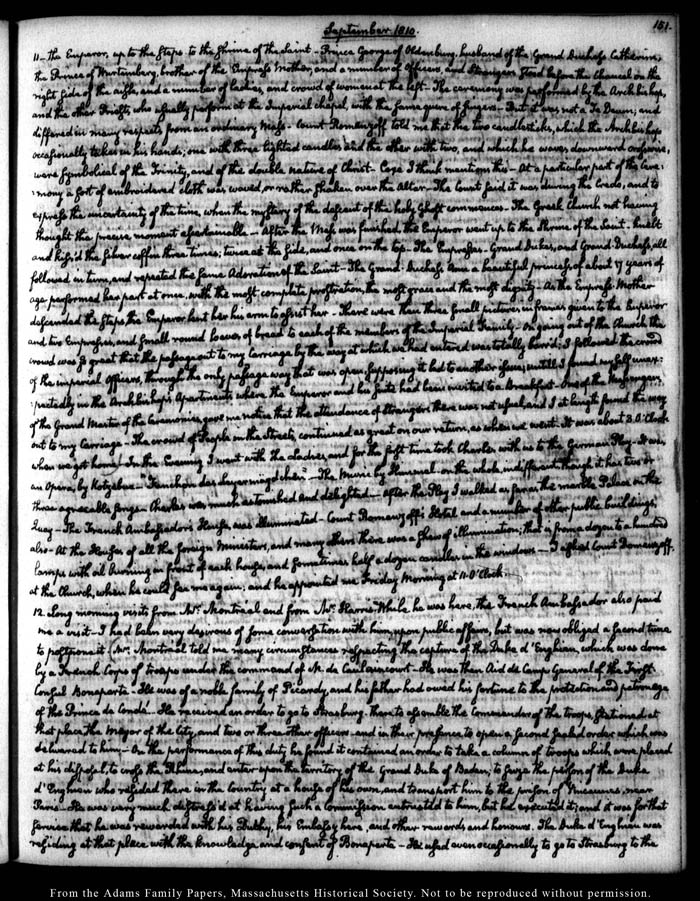 September 1810.
151.
11— the Emperor, up to the Steps to the Shrine of the Saint— Prince George of Oldenburg, husband of the Grand Duchess Catherine,
the Prince of Wurtemberg, brother of the Empress Mother, and a number of Officers, and Strangers stood before the Chancel on the
right side of the aisle, and a number of ladies, and crowd of women at the left— The ceremony was performed by the Archbishop,
and the other Priests, who usually perform at the Imperial chapel, with the same quire of singers— But it was not a Te Deum; and
differed in many respects from an ordinary Mass— Count Romanzoff told me that the two candlesticks, which the Archbishop
occasionally takes in his hands; one with three lighted candles and the other with two, and which he waves, downward crosswise,
were symbolical of the Trinity, and of the double nature of Christ— Coxe I think mentions this— At a particular part of the cere-
mony a sort of embroidered cloth was waved, or rather shaken over the Altar— The Count said it was during the Credo, and to
express the uncertainty of the time, when the mystery of the descent of the holy Ghost commences— The Greek Church not having
thought the precise moment ascertainable— After the Mass was finished, the Emperor went up to the Shrine of the Saint— knelt
and kiss'd the silver coffin three times; twice at the side, and once on the top— The Empresses— Grand Dukes, and Grand Duchess, all
followed in turn, and repeated the same Adoration of the Saint— The Grand Duchess Ann a beautiful princess, of about 17 years of
age performed her part at once, with the most complete prostration, the most grace and the most dignity— As the Empress Mother
descended the steps the Emperor lent her his arm to assist her— There were then three small pictures in frames given to the Emperor
and two Empresses, and small round loaves of bread to each of the members of the Imperial Family— On going out of the Church the
crowd was so great that the passage out to my carriage by the way at which we had entered was totally barr'd; I followed the crowd
of the imperial Officers, through the only passage way that was open, supposing it led to another issue; untill I found myself unex-
pectedly in the Archbishop's Apartments where the Emperor and his suite had been invited to a Breakfast— One of the Messengers
of the Grand Master of the Ceremonies gave me notice, that the attendance of strangers there was not usual and I at length found the way
out to my Carriage— The crowd of People in the Streets, continued as great on our return, as when we went— It was about 3. O'Clock
when we got home. In the Evening I went with the ladies, and for the first time took Charles with us to the German Play— It was,
an Opera, by Kotzebue— "Fanchon das Leyermagdchen"— The Music by Himmel— on the whole, indifferent, though it has two or
three agreeable songs— Charles was much astonished and delighted— After the Play I walked as far as the marble Palace on the
Quay— The French Ambassador's House, was illuminated— Count Romanzoff's Hotel and a number of other public buildings
also— At the Houses of all the foreign Ministers, and many others there was a shew of illumination; that is from a dozen to a hundred
Lamps with oil burning in front of each house, and sometimes half a dozen candles in the windows— I asked Count Romanzoff,
at the Church, when he could see me again; and he appointed me Friday Morning at 11. O'Clock.
12. Long morning visits from Mr: Montréal and from Mr: Harris. While he was here, the French Ambassador also paid
me a visit— I had been very desirous of some conversation with him, upon public affairs, but was now obliged a second time
to postpone it. Mr: Montréal told me many circumstances respecting the capture of the Duke d'Enghien, which was done
by a French Corps of troops under the command of M. de Caulaincourt— He was then Aid de Camps General of the first
Consul Bonaparte— He was of a noble family of Picardy, and his father had owed his fortune to the protection and patronage
of the Prince de Condé— He received an order to go to Strasburg. There to assemble the Commander of the troops stationed at
that place, the Mayor of the City, and two or three other officers— and in their presence, to open a second sealed order which was
delivered to him— On the performance of this duty, he found it contained an order to take a column of troops which were placed
at his disposal, to cross the Rhine, and enter upon the territory of the Grand Duke of Baden, to seize the person of the Duke
d'Enghien who resided there in the country at a house of his own, and transport him to the prison of Vincennes, near
Paris— He was very much distress'd at having such a commission entrusted to him, but he executed it; and it was for that
service that he was rewarded with his Duchy, his Embassy here, and other rewards and honours. The Duke d'Enghien was
residing at that place with the knowledge and consent of Bonaparte— He used even occasionally to go to Strasburg to the
From the Adams Family Papers, Massachusetts Historical Society. Not to be reproduced without permission.